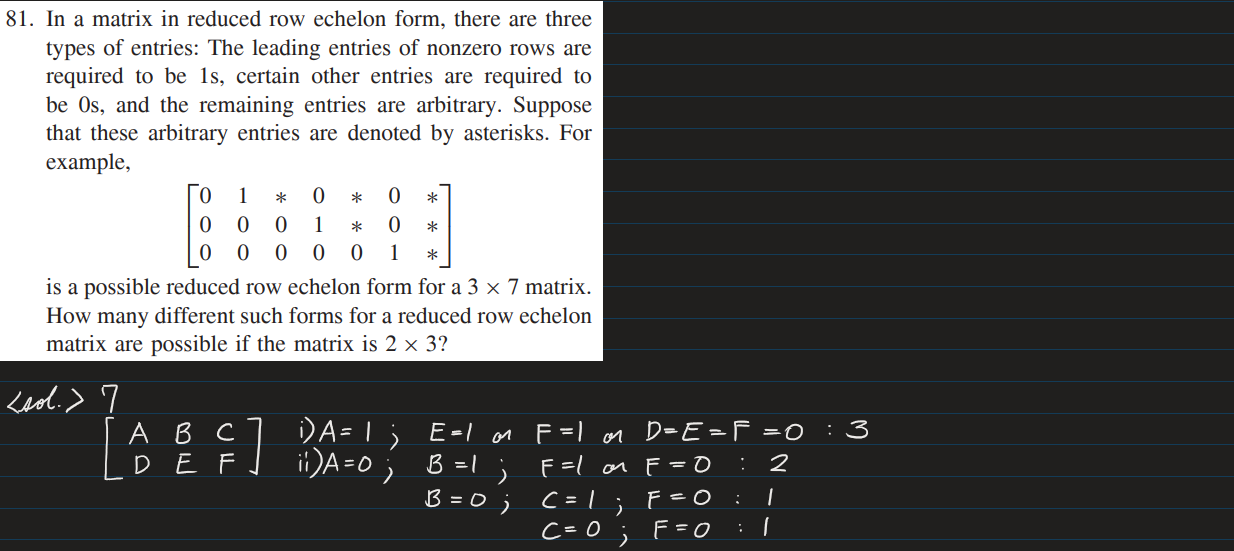 81. In a matrix in reduced row echelon form, there are three
types of entries: The leading entries of nonzero rows are
required to be 1s, certain other entries are required to
be 0s, and the remaining entries are arbitrary. Suppose
that these arbitrary entries are denoted by asterisks. For
example,
[0 1 * 0 * 0 *]
[0 0 0 1 * 0 *]
[0 0 0 0 0 1 *]
is a possible reduced row echelon form for a 3 × 7 matrix.
How many different such forms for a reduced row echelon
matrix are possible if the matrix is 2 × 3?
<sol.> 7
[A B C] i) A=1 ; E=1 or F=1 or D=E=F=0 : 3
[D E F] ii) A=0 ; B=1 ; F=1 or F=0 : 2
B=0 ; C=1 ; F=0 : 1
C=0 ; F=0 : 1